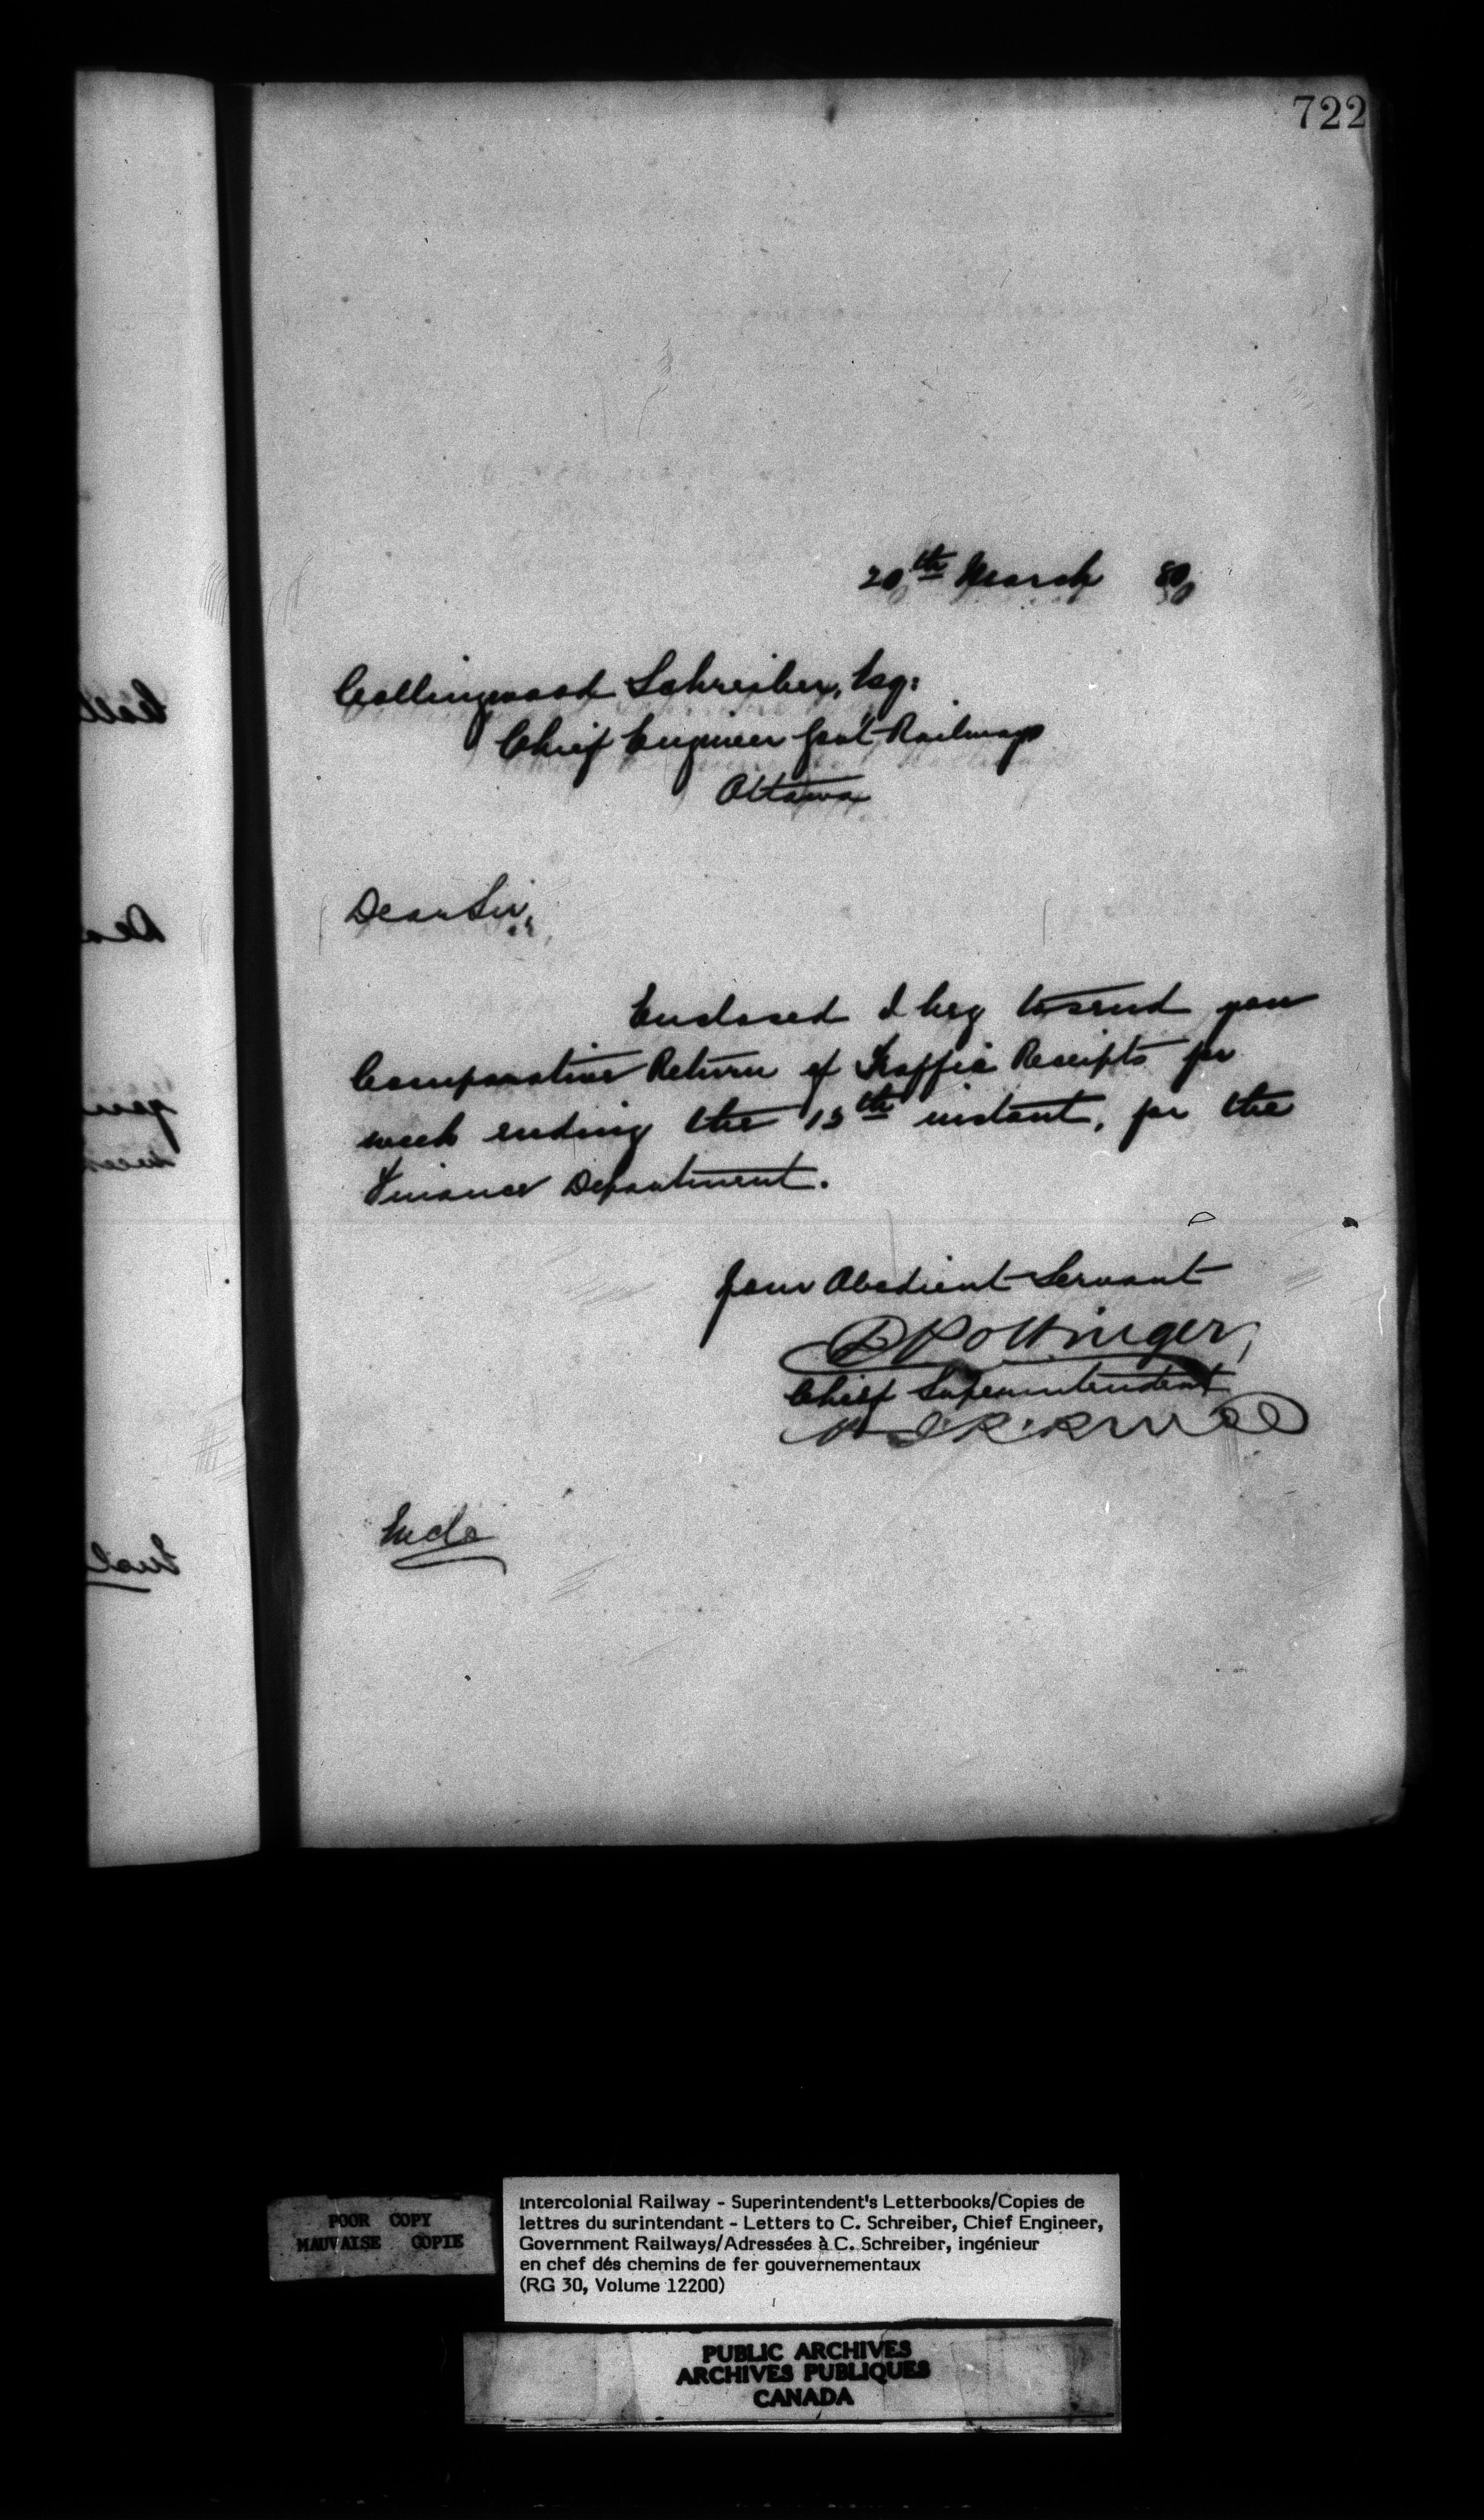 722
20th March 80
Collingwood Schreiber, Esq:
Chief Engineer Govt Railways
Ottawa
Dear Sir,
Enclosed I beg to send you
Comparative Return of Traffic Receipts for
week ending the 13th instant, for the
Finance Department.
Your Obedient Servant
D Pottinger,
Chief Superintendent
Encls
POOR COPY
MAUVAISE COPIE
Intercolonial Railway - Superintendent's Letterbooks/Copies de
lettres du surintendant - Letters to C. Schreiber, Chief Engineer,
Government Railways/Adressées à C. Schreiber, ingénieur
en chef dés chemins de fer gouvernementaux
(RG 30, Volume 12200)
PUBLIC ARCHIVES
ARCHIVES PUBLIQUES
CANADA